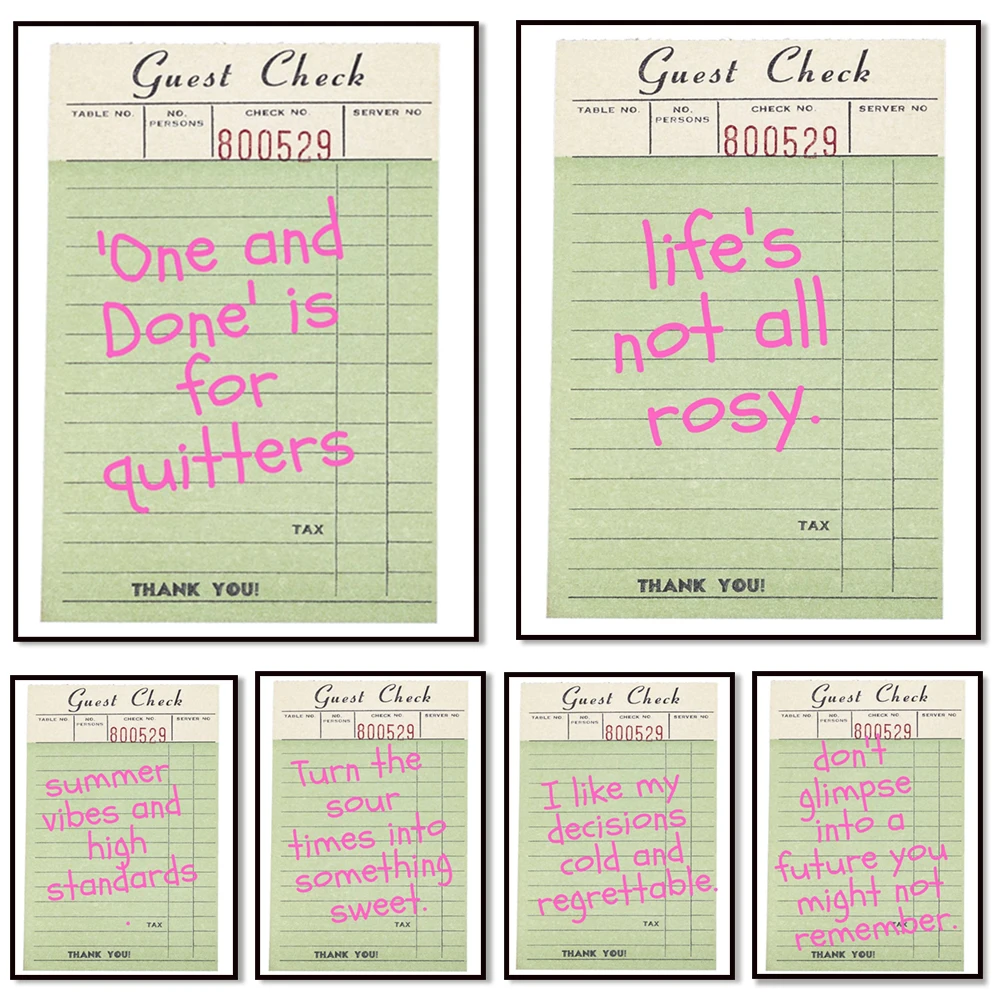 Guest Check
TABLE NO.
NO. PERSONS
CHECK NO.
SERVER NO
800529
'One and
Done' is
for
quitters
TAX
THANK YOU!
Guest Check
TABLE NO.
NO. PERSONS
CHECK NO.
SERVER NO
800529
life's
not all
rosy.
TAX
THANK YOU!
Guest Check
TABLE NO.
NO. PERSONS
CHECK NO.
SERVER NO
800529
summer
vibes and
high
standards
.
TAX
THANK YOU!
Guest Check
TABLE NO.
NO. PERSONS
CHECK NO.
SERVER NO
800529
Turn the
sour
times into
something
sweet.
TAX
THANK YOU!
Guest Check
TABLE NO.
NO. PERSONS
CHECK NO.
SERVER NO
800529
I like my
decisions
cold and
regrettable.
TAX
THANK YOU!
Guest Check
TABLE NO.
NO. PERSONS
CHECK NO.
SERVER NO
800529
don't
glimpse
into a
future you
might not
remember.
TAX
THANK YOU!